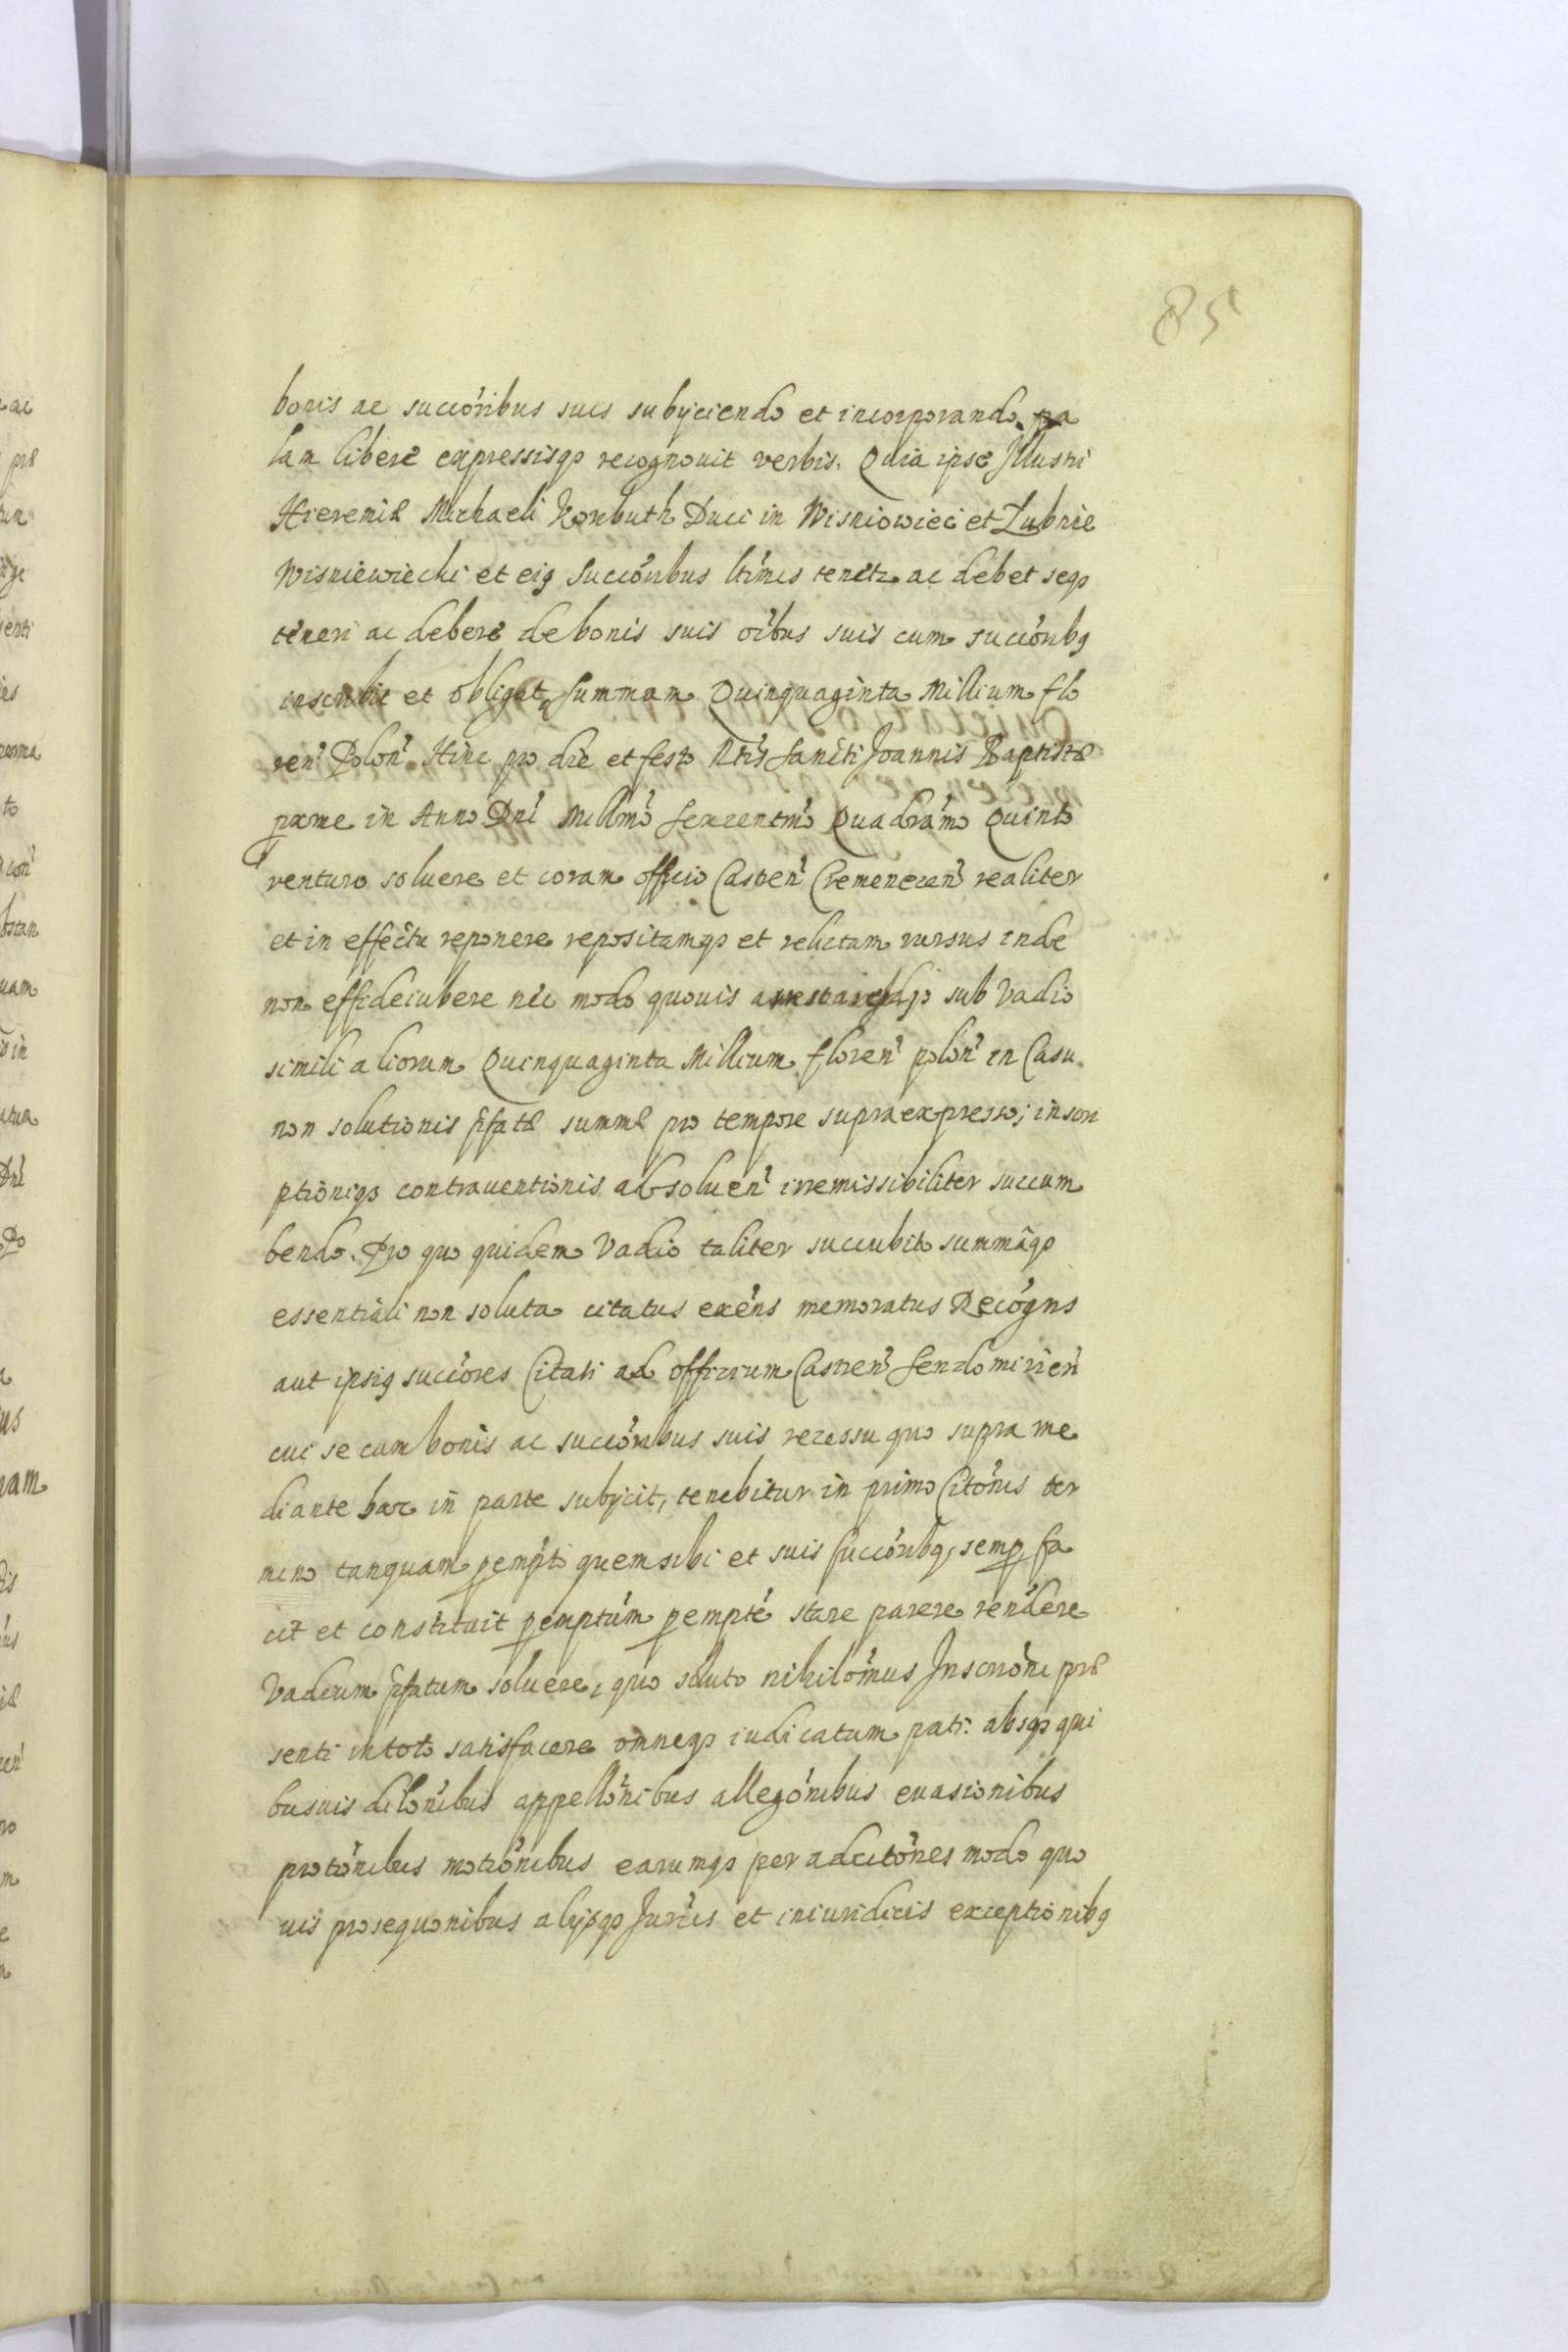 85
bonis ac succõribus suis subijciendo et incorporando pa
lam libere expressisq3 recognouit verbis. Quia ipse Illustri
Hieremię Michaeli Koributh Duci in Wisniowiec et Lubnie
Wisniewiecki et eig succõribus ltĩmis tenetr ac debet seq3
teneri ac debere de bonis suis oĩbus suis cum succõribg
inscribit et obligat, summam Quinquaginta Millium flo
ren' Polon' Hinc pro die et festo Ntĩs Sancti Joannis Baptistę
pxme in Anno Dnĩ Millmo Sexcentmo Quadrãmo Quinto
venturo soluere et coram officio Castren' Cremenecen' realiter
et in effectu reponere repositamq3 et relictam rursus inde
non effideiubere nec modo quouis arrestare sub Vadio
simili aliorum Quinquaginta Millium floren' polon' in Casu
non solutionis pfatę summę pro tempore supraexpresso; inscri
ptioniq3 contrauentionis absoluen' irremissibiliter succum
bendo. Pro quo quidem Vadio taliter succubito summaq3
essentiali non soluta citatus exẽns memoratus Recõgns
aut ipsig succõres Citati ad officium Castren' Sendomirien'
cui se cum bonis ac succõribus suis recessu quo supra me
diante hac in parte subijcit, tenebitur in primo Citõnis ter
mino tanquam pempto quem sibi et suis succõribg, semp fa
cit et constituit pemptum pempte stare parere rendere
Vadium pfatum soluere, quo soluto nihilominus Inscriõni prę
senti in toto satisfacere omneq3 iudicatum pati. absq3 qui
busuis dilõnibus appellõnibus allegõnibus euasionibus
protõnibus motiõnibus earumq3 per adcitõnes modo quo
uis prosequonibus alijsq3 Juris et iniuridicis exceptionibg